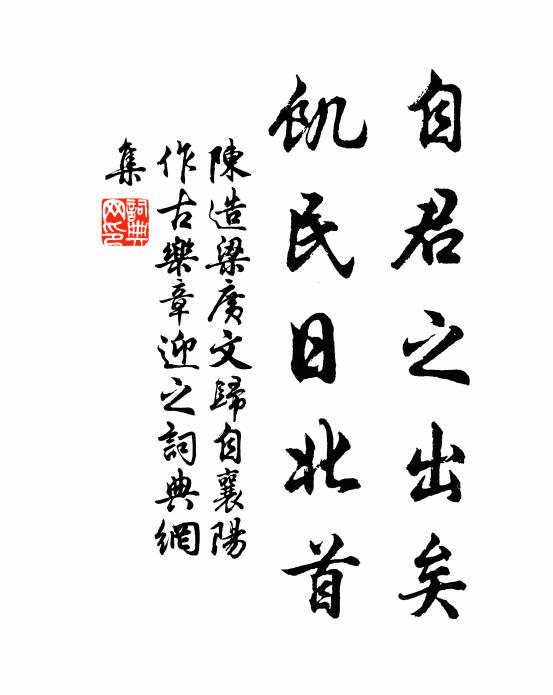 自君之出矣
飢民日北首
陳造梁廣文歸自襄陽
作古樂章迎之詞典網
集
詞典
网印